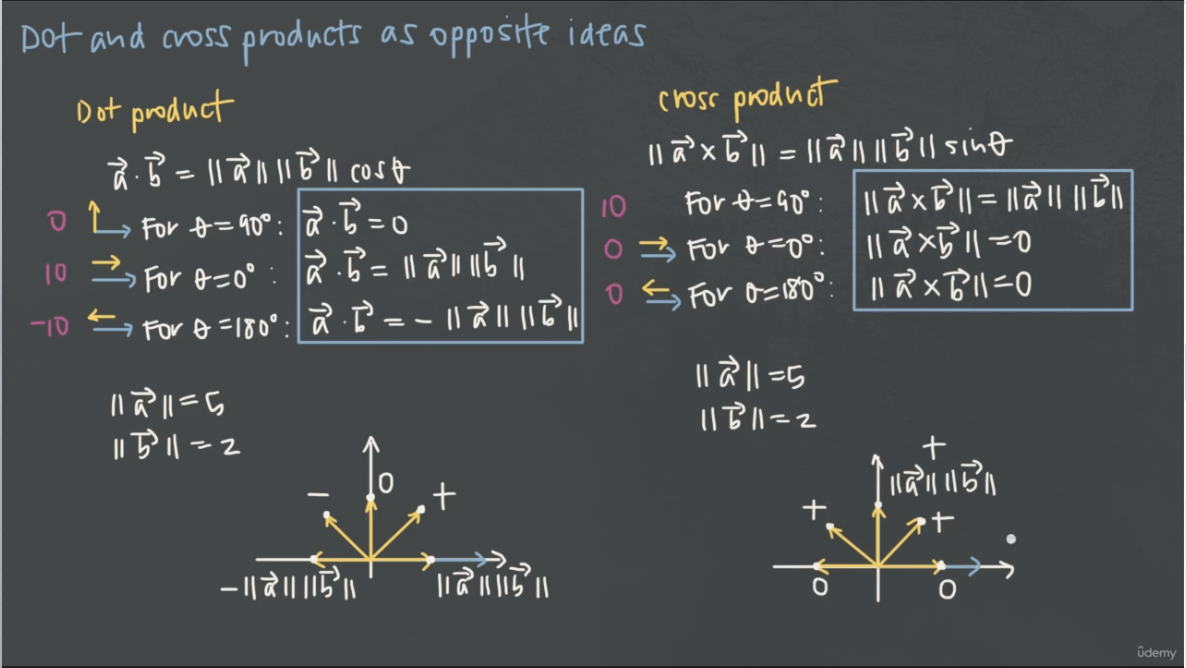 Dot and cross products as opposite ideas
Dot product
a⃗ · b⃗ = ||a⃗|| ||b⃗|| cosθ
0 For θ=90°: a⃗ · b⃗ = 0
10 For θ=0°: a⃗ · b⃗ = ||a⃗|| ||b⃗||
-10 For θ=180°: a⃗ · b⃗ = - ||a⃗|| ||b⃗||
||a⃗|| = 5
||b⃗|| = 2
0
- +
-||a⃗|| ||b⃗|| ||a⃗|| ||b⃗||
cross product
||a⃗ × b⃗|| = ||a⃗|| ||b⃗|| sinθ
10 For θ=90°: ||a⃗ × b⃗|| = ||a⃗|| ||b⃗||
0 For θ=0°: ||a⃗ × b⃗|| = 0
0 For θ=180°: ||a⃗ × b⃗|| = 0
||a⃗|| = 5
||b⃗|| = 2
+
||a⃗|| ||b⃗||
+ +
0 0
ûdemy